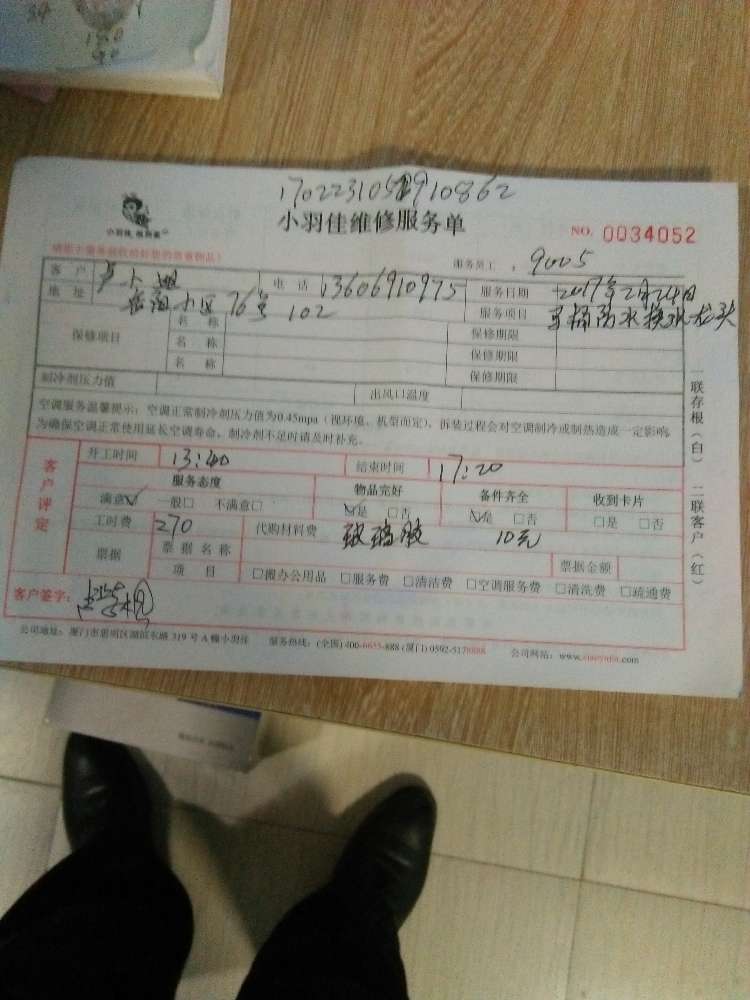 170223105910862
小羽佳维修服务单
NO. 0034052
服务员工：9005
客户 电话 13606910975 服务日期 2017年2月24日
地址 小区76号102 服务项目 马桶防水换水龙头
保修项目 名称 保修期限
名称 保修期限
名称 保修期限
制冷剂压力值 出风口温度
空调服务温馨提示：空调正常制冷剂压力值为0.45mpa（视环境、机型而定），拆装过程会对空调制冷或制热造成一定影响，
为确保空调正常使用延长空调寿命，制冷剂不足时请及时补充。
客户评定
开工时间 13:40 结束时间 17:20
服务态度 物品完好 备件齐全 收到卡片
满意☑ 一般□ 不满意□ ☑是 □否 ☑是 □否 □是 □否
工时费 270 代购材料费 玻璃胶 10元
票据 票据名称 票据金额
项目 □搬办公用品 □服务费 □清洁费 □空调服务费 □清洗费 □疏通费
客户签字：
公司地址：厦门市思明区湖滨东路319号A幢小羽佳 服务热线：(全国)400-6655-888 (厦门)0592-5178888 公司网站：www.xiaoyujia.com
一联存根（白） 二联客户（红）